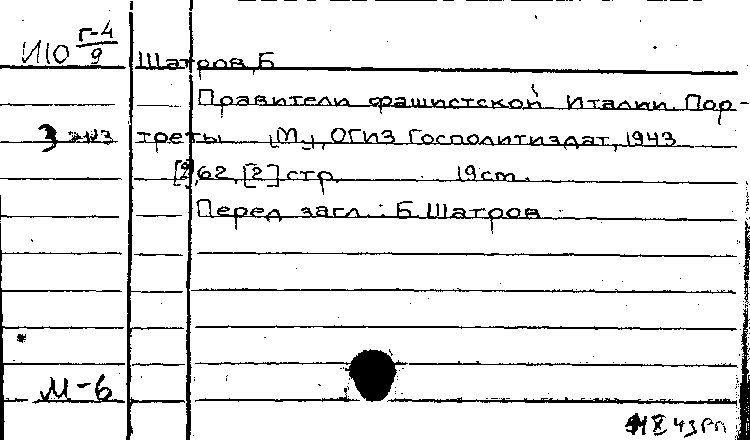 И10 Г-4/9
Шатров, Б
Правители фашистской Италии. Пор-
треты [М.], ОГИЗ Госполитиздат, 1943
62, [2] стр. 19 cm.
Перед загл.: Б. Шатров
М-6